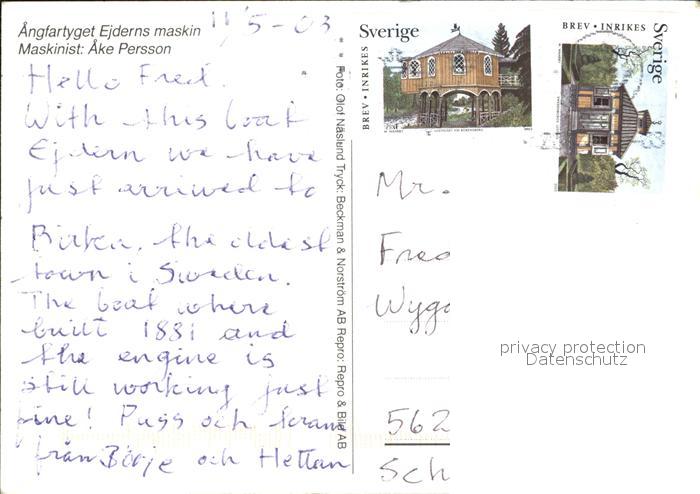 Ångfartyget Ejderns maskin
Maskinist: Åke Persson
11/5-03
Hello Fred.
With this boat
Ejdern we have
just arrived to
Birka, the oldest
town i Sweden.
The boat where
built 1831 and
the engine is
still working just
fine! Puss och kram
från Börje och Hettan
Foto: Olof Näslund Tryck: Beckman & Norström AB Repro: Repro & Bild AB
Sverige
BREV • INRIKES
Sverige
BREV • INRIKES
Mr.
Fred
Wygo
562
Sch
privacy protection
Datenschutz